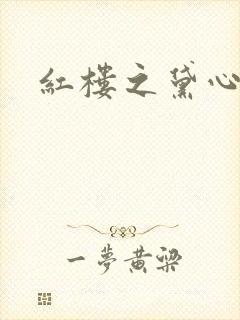 紅樓之黛心
一夢黃粱